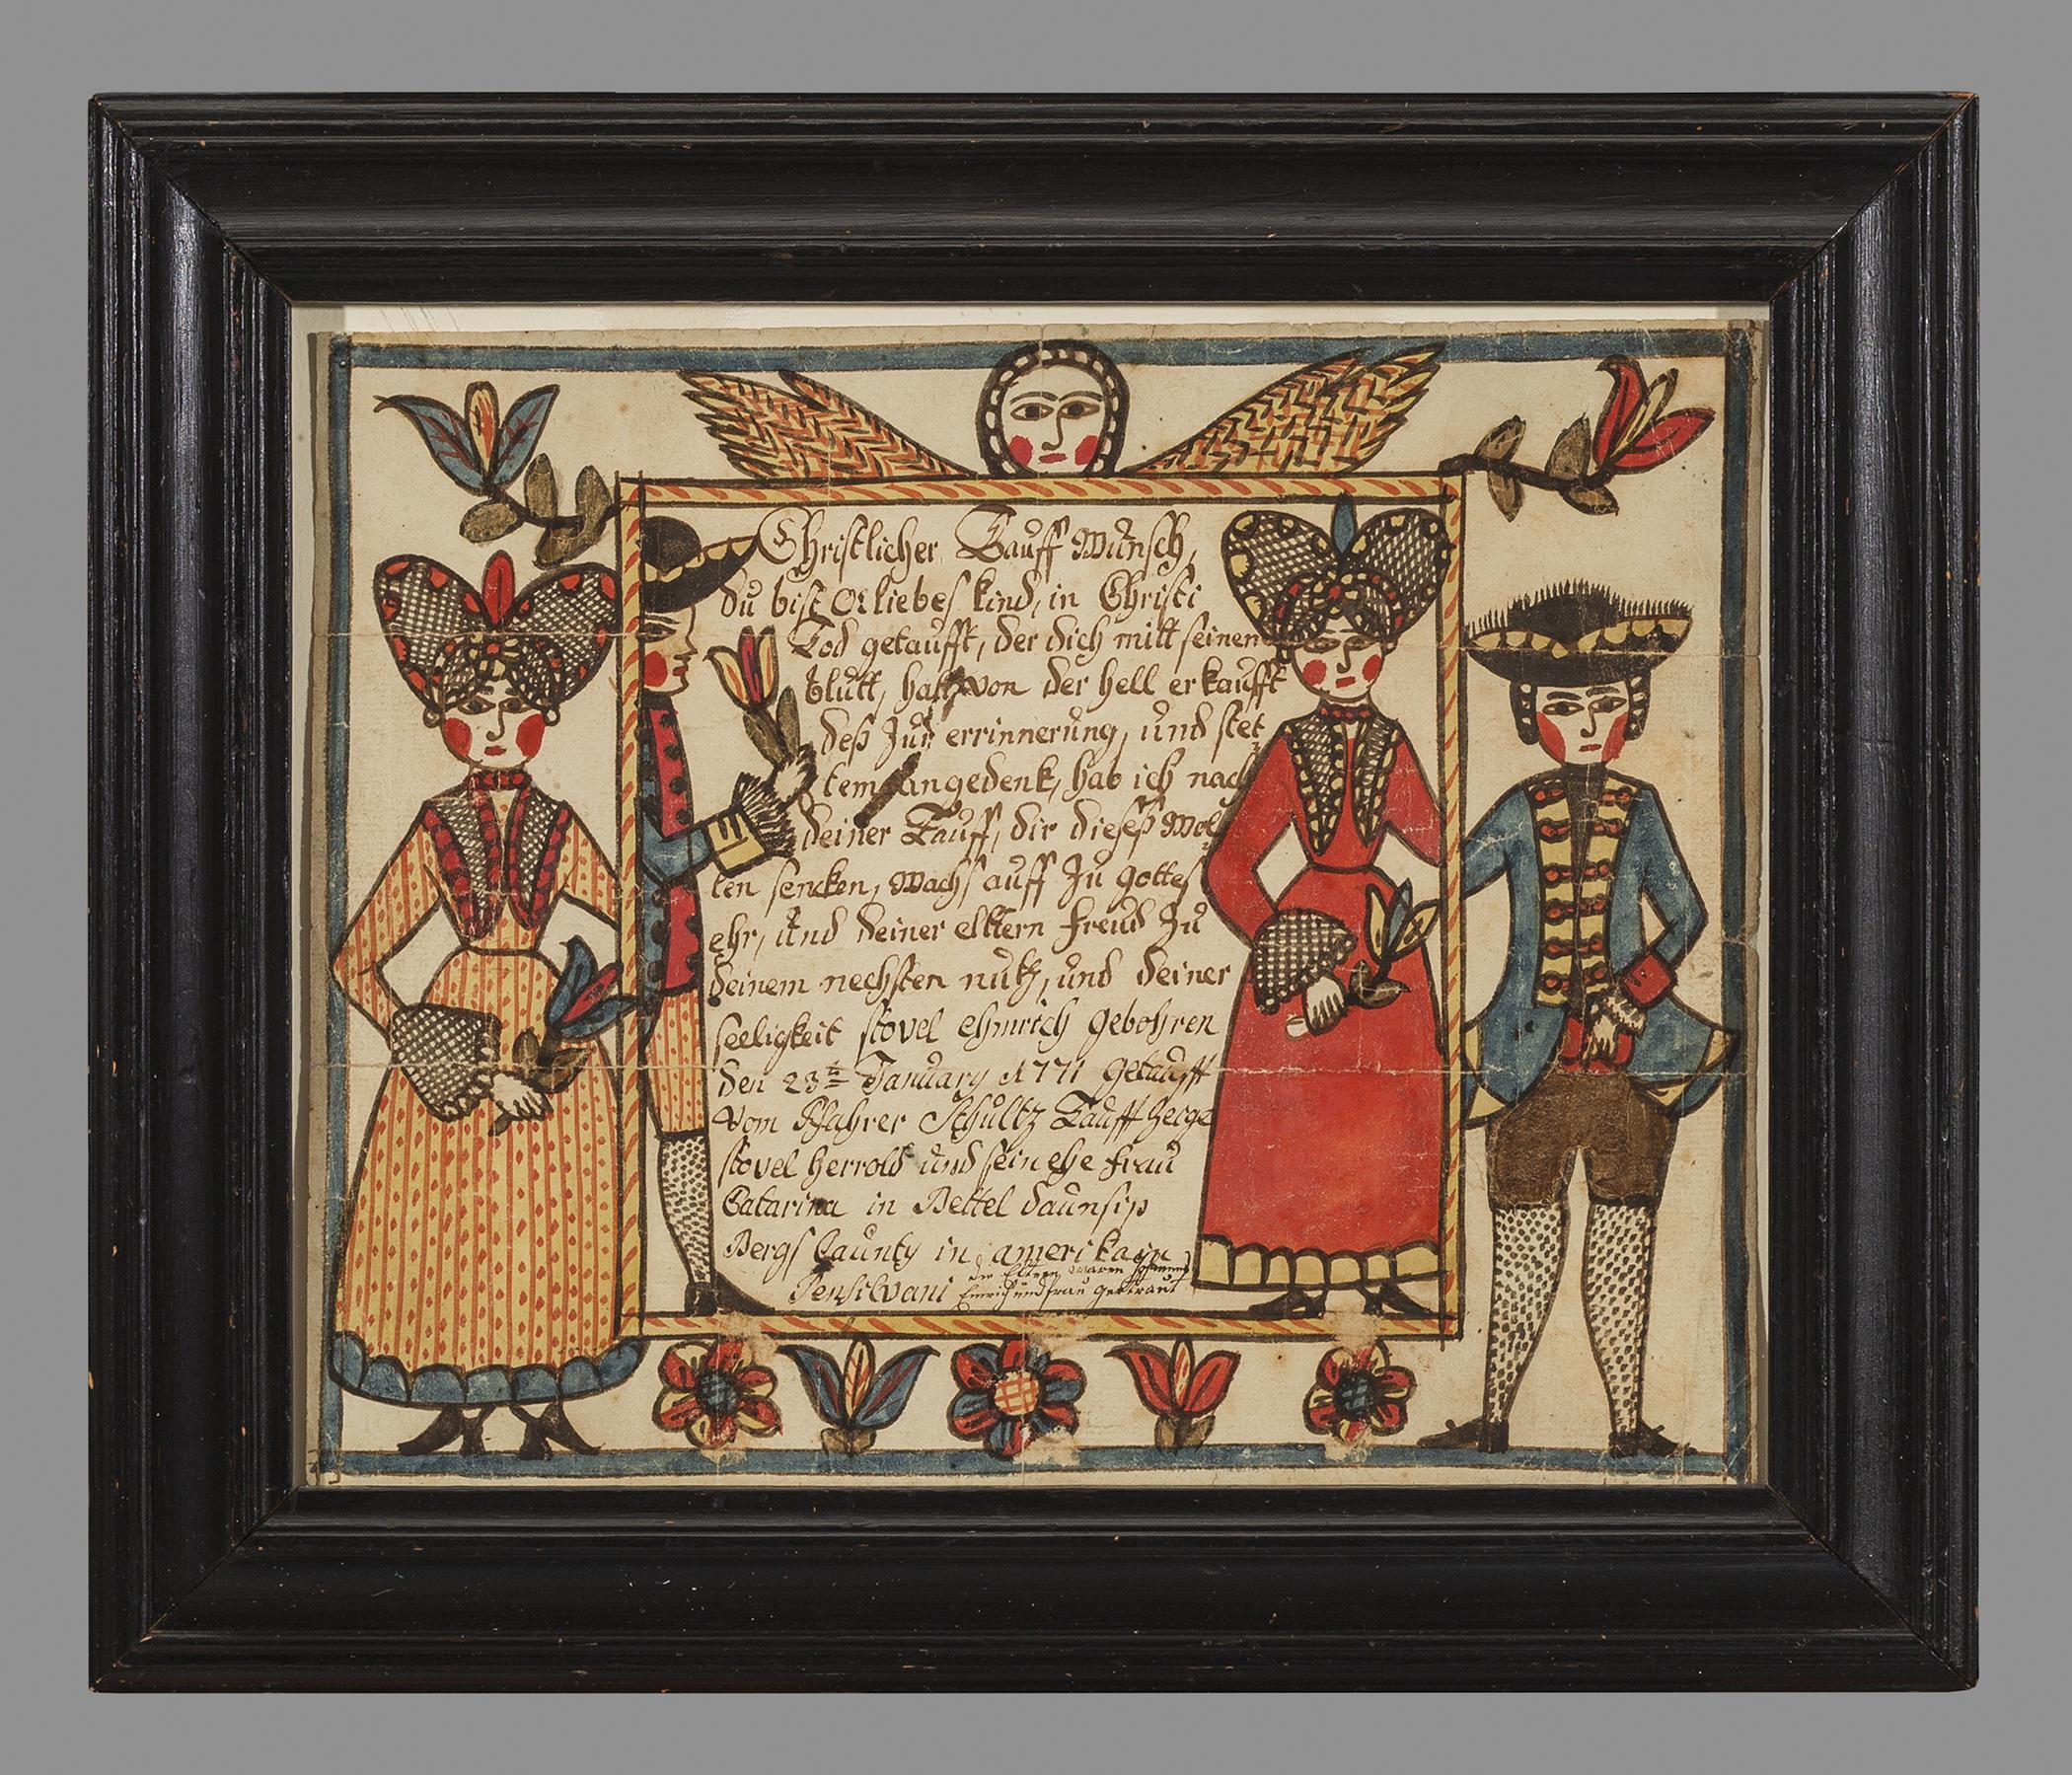 Christlicher Tauff Wunsch,
du bist o liebes kind, in Christi
Tod getaufft, der dich mitt seinem
blutt, hatt von der hell erkaufft
deß zur errinnerung, und stet
tem angedenk, hab ich nach
deiner Tauff, dir dieses wol
len sencken, wachs auff zu gottes
ehr, und deiner eltern freud zu
deinem nechsten nutz, und deiner
seeligkeit stovel ehmrich gebohren
den 23ten January 1771 getaufft
vom Pfahrer Schultz Tauff zeige
stovel herrold und sein ehe frau
Catarina in Bettel daunsip
Bergs Caunty in amerika in
Pensilvani
die Eltern waren Johannes
Emrich und frau gertraut